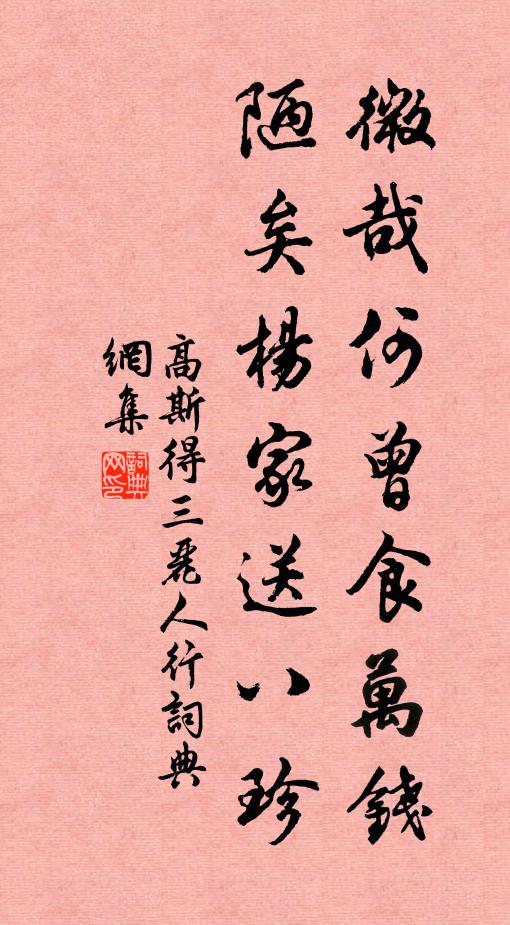 微哉何曾食萬錢
陋矣楊家送八珍
高斯得三麗人行詞典
網集
詞典
网印